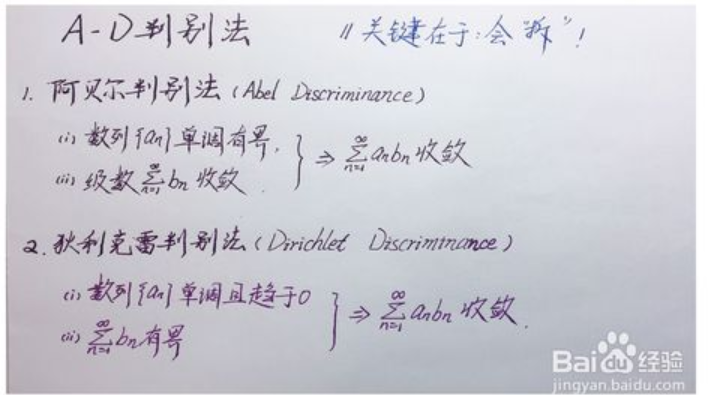 A-D判别法 // 关键在于:会"拆"!
1. 阿贝尔判别法 (Abel Discriminance)
(i) 数列{an}单调有界,
(ii) 级数∑_{n=1}^{∞} bn 收敛
} ⇒ ∑_{n=1}^{∞} anbn 收敛
2. 狄利克雷判别法 (Dirichlet Discriminance)
(i) 数列{an}单调且趋于0
(ii) ∑_{n=1}^{∞} bn 有界
} ⇒ ∑_{n=1}^{∞} anbn 收敛.
Baidu经验
jingyan.baidu.com